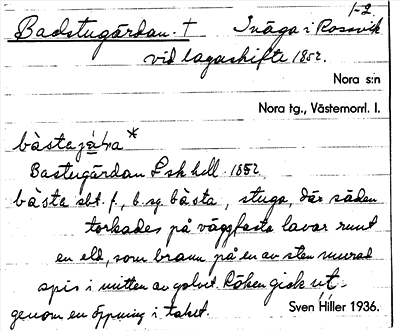 1-2
Badstugårdan. † Inäga i Rossvik
vid lagaskifte 1852.
Nora s:n
Nora tg., Västernorrl. l.
bàstajáḷa*
Bastugårdan Lskhdl. 1852
bàsta sbt. f., b. sg. bàsta, stuga, där säden
torkades på väggfasta lavar runt
en eld, som brann på en av sten murad
spis i mitten av golvet. Röken gick ut
genom en öppning i taket.
Sven Hiller 1936.